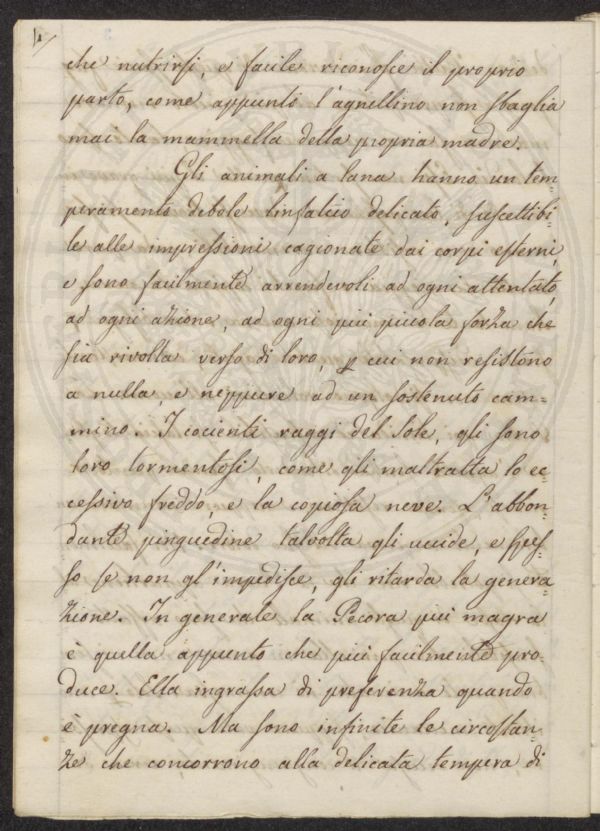 che nutrirsi, e facile riconosce il proprio
parto, come appunto l'agnellino non sbaglia
mai la mammella della propria madre.
Gli animali a lana hanno un tem=
peramento debole linfatico delicato, suscettibi=
le alle impressioni cagionate dai corpi esterni,
e sono facilmente arrendevoli ad ogni attentato,
ad ogni azione, ad ogni più piccola forza che
sia rivolta verso di loro, p cui non resistono
a nulla, e neppure ad un sostenuto cam=
mino. I cocienti raggi del Sole, gli sono
loro tormentosi, come gli maltratta lo ec=
cessivo freddo, e la copiosa neve. L'abbon=
dante pinguedine talvolta gli uccide, e spes=
so se non gl'impedisce, gli ritarda la genera=
zione. In generale la Pecora più magra
è quella appunto che più facilmente pro=
duce. Ella ingrassa di preferenza quando
è pregna. Ma sono infinite le circostan=
ze che concorrono alla delicata tempera di